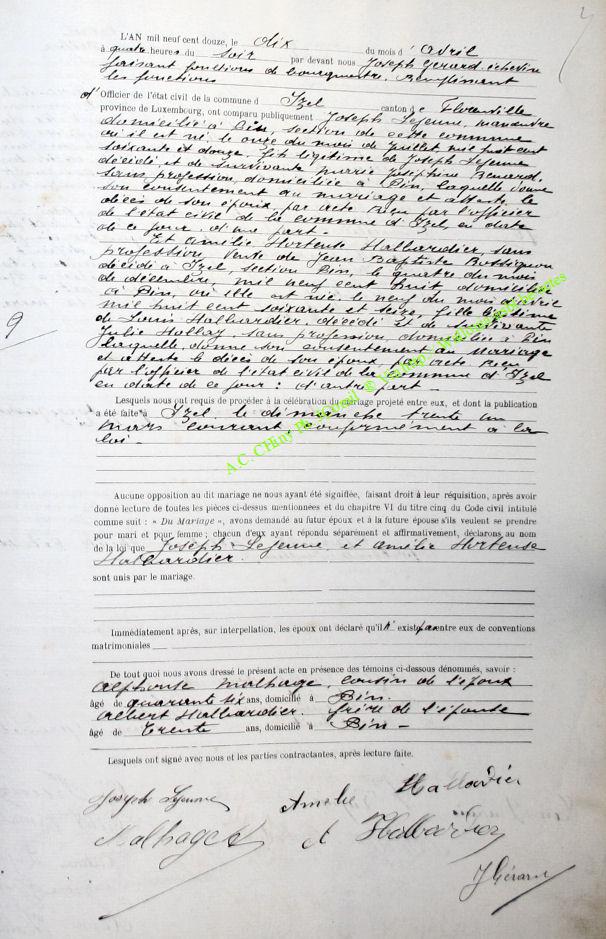 L'AN mil neuf cent douze, le dix du mois d' avril
à quatre heures du soir par devant nous Joseph Gérard échevin
faisant fonctions de bourgmestre. Remplissant
les fonctions
d' Officier de l'état civil de la commune d' Izel canton de Florenville
province de Luxembourg, ont comparu publiquement Joseph Lejeune, manœuvre
domicilié à Pin, section de cette commune
où il est né, le onze du mois de juillet mil huit cent
soixante et douze. Fils légitime de Joseph Lejeune
décédé, et de survivante Marie Joséphine Renard,
sans profession, domiciliée à Pin, laquelle donne
son consentement au mariage et atteste le
décès de son époux, par acte reçu par l'officier
de l'état civil de la commune d'Izel, en date
de ce jour, d'une part.
Et Amélie Hortense Halbardier, sans
profession, veuve de Jean Baptiste
décédé à Izel, section Pin, le quatre du mois
de décembre, mil neuf cent huit, domiciliée
à Pin, où elle est née, le neuf du mois
mil huit cent soixante et seize, fille légitime
de Louis Halbardier, décédé et de survivante
Julie sans profession, domiciliée à Pin
laquelle donne son consentement au mariage
et atteste le décès de son époux, par acte reçu
par l'officier de l'état civil de la commune d'Izel
en date de ce jour : d'autre part -
9
Lesquels nous ont requis de procéder à la célébration du mariage projeté entre eux, et dont la publication
a été faite à Izel, le dimanche trente un
mars courant, conformément à la
loi -
A.C. CHiny
Aucune opposition au dit mariage ne nous ayant été signifiée, faisant droit à leur réquisition, après avoir
donné lecture de toutes les pièces ci-dessus mentionnées et du chapitre VI du titre cinq du Code civil intitulé
comme suit : « Du Mariage », avons demandé au futur époux et à la future épouse s'ils veulent se prendre
pour mari et pour femme ; chacun d'eux ayant répondu séparément et affirmativement, déclarons au nom
de la loi que Joseph Lejeune et Amélie Hortense
Halbardier.
sont unis par le mariage.
Immédiatement après, sur interpellation, les époux ont déclaré qu'il n' existe pas entre eux de conventions
matrimoniales
De tout quoi nous avons dressé le présent acte en présence des témoins ci-dessous dénommés, savoir :
Alphonse Malhage, cousin de l'époux
âgé de quarante six ans, domicilié à Pin.
Albert Halbardier. frère de l'épouse
âgé de trente ans, domicilié à Pin -
Lesquels ont signé avec nous et les parties contractantes, après lecture faite.
Joseph Lejeune Amélie
J Gérard